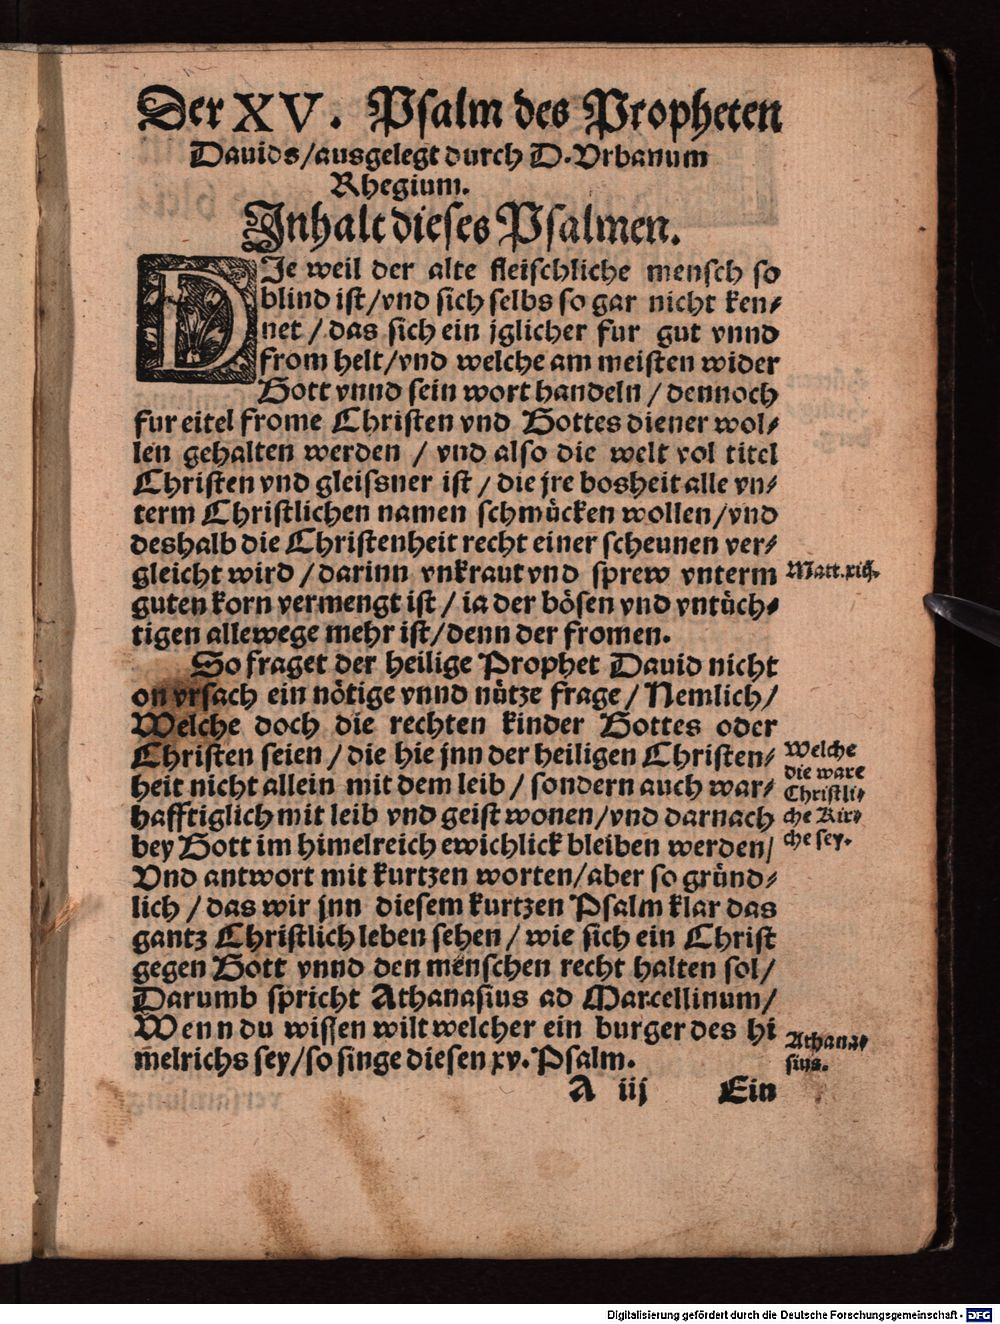 Der XV. Psalm des Propheten
Dauids/ausgelegt durch D. Vrbanum
Rhegium.
Inhalt dieses Psalmen.
DJe weil der alte fleischliche mensch so
blind ist/vnd sich selbs so gar nicht ken⸗
net / das sich ein jglicher fur gut vnnd
from helt/vnd welche am meisten wider
Gott vnnd sein wort handeln / dennoch
fur eitel frome Christen vnd Gottes diener wol⸗
len gehalten werden / vnd also die welt vol titel
Christen vnd gleissner ist / die jre bosheit alle vn⸗
term Christlichen namen schmuͤcken wollen/vnd
deshalb die Christenheit recht einer scheunen ver⸗
gleicht wird / darinn vnkraut vnd sprew vnterm
guten korn vermengt ist / ia der boͤsen vnd vntuͤch⸗
tigen allewege mehr ist/denn der fromen.
So fraget der heilige Prophet Dauid nicht
on vrsach ein noͤtige vnnd nuͤtze frage / Nemlich/
Welche doch die rechten kinder Gottes oder
Christen seien / die hie jnn der heiligen Christen⸗
heit nicht allein mit dem leib / sondern auch war⸗
hafftiglich mit leib vnd geist wonen/vnd darnach
bey Gott im himelreich ewichlick bleiben werden/
Vnd antwort mit kurtzen worten/aber so gruͤnd⸗
lich / das wir jnn diesem kurtzen Psalm klar das
gantz Christlich leben sehen / wie sich ein Christ
gegen Gott vnnd den menschen recht halten sol/
Darumb spricht Athanasius ad Marcellinum/
Wenn du wissen wilt welcher ein burger des hi
m̄elrichs sey/so singe diesen xv. Psalm.
A iij Ein
Matt. xiij.
Welche
die ware
Christli⸗
che Kir⸗
che sey.
Athana⸗
sius.
Digitalisierung gefördert durch die Deutsche Forschungsgemeinschaft - DFG